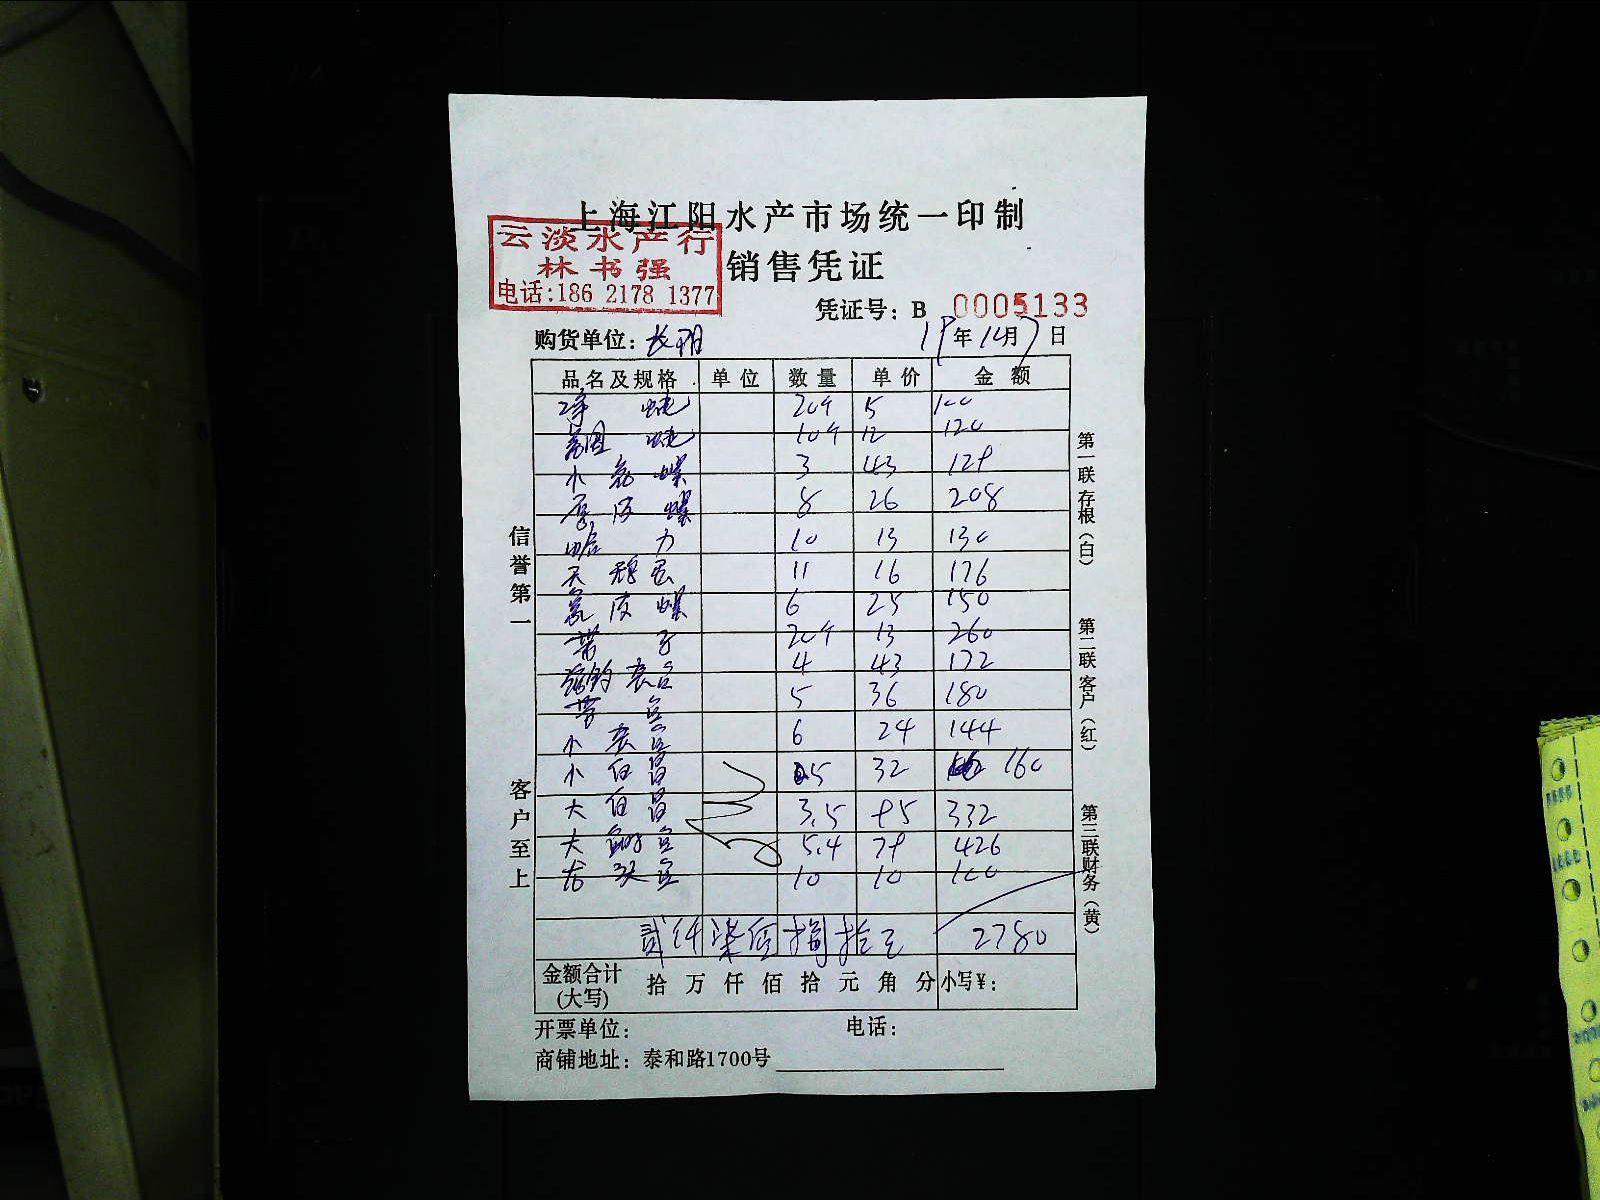 上海江阳水产市场统一印制
云淡水产行
林书强
电话:186 2178 1377
销售凭证
凭证号：B 0005133
购货单位：长阳 19年12月7日
品名及规格 单位 数量 单价 金额
20个 5 100
10个 12 120
小 螺 3 43 129
厚皮螺 8 26 208
10 13 130
天鹅蛋 11 16 176
皮螺 6 25 150
带子 20个 13 260
4 43 172
5 36 180
小 6 24 144
小白 5 32 160
大白 3.5 95 332
大 5.4 79 426
龙头 10 10 100
贰仟柒佰捌拾元 2780
金额合计(大写) 拾 万 仟 佰 拾 元 角 分 小写¥：
开票单位： 电话：
商铺地址：泰和路1700号
信誉第一
客户至上
第一联存根(白)
第二联客户(红)
第三联财务(黄)